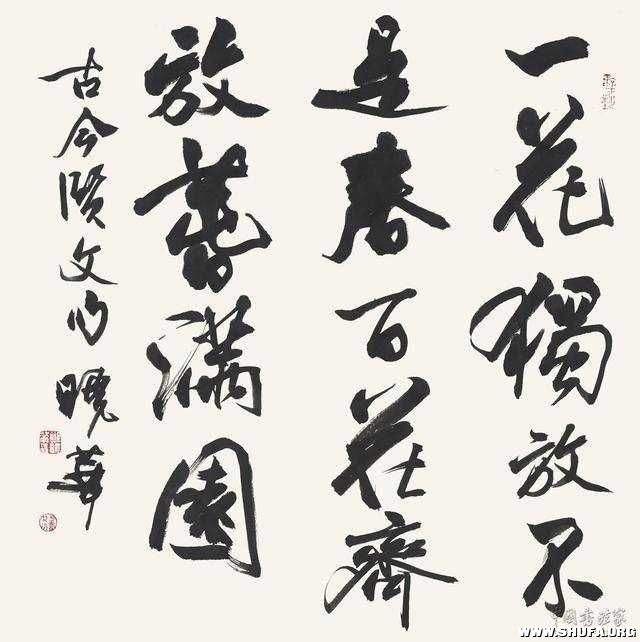 一花獨放不
是春百花齊
放萅滿園
古今賢文句 曉華
中國書法家